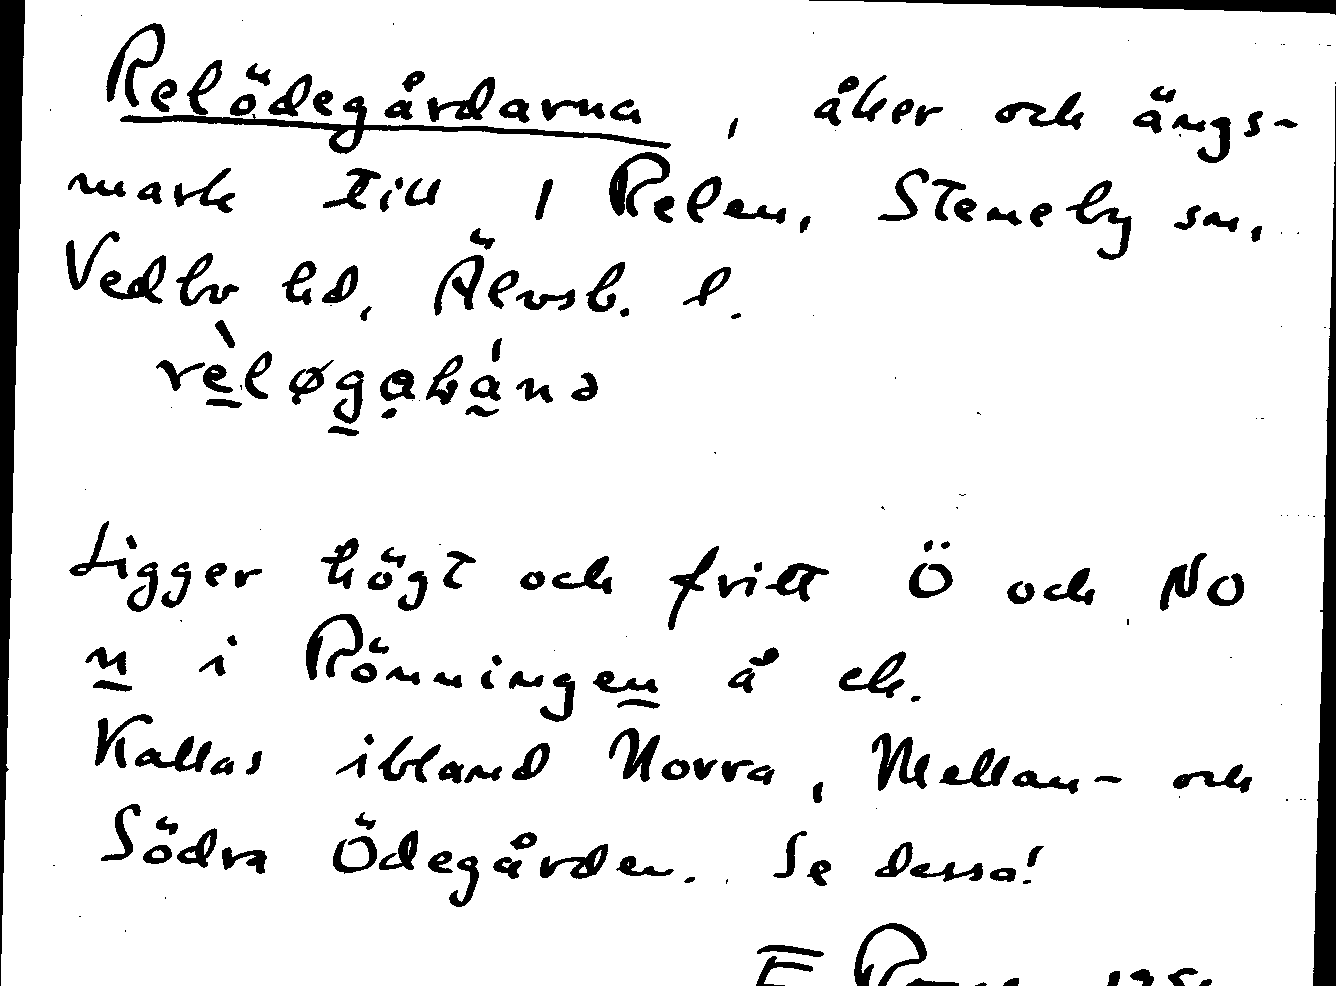 Relödegårdarna, åker och ängs-
mark till 1 Relen, Steneby sn,
Vedbo hd, Älvsb. l.
Ligger högt och fritt Ö och NO
n i Rönningen å ek.
Kallas ibland Norra, Mellan- och
Södra Ödegården. Se dessa!